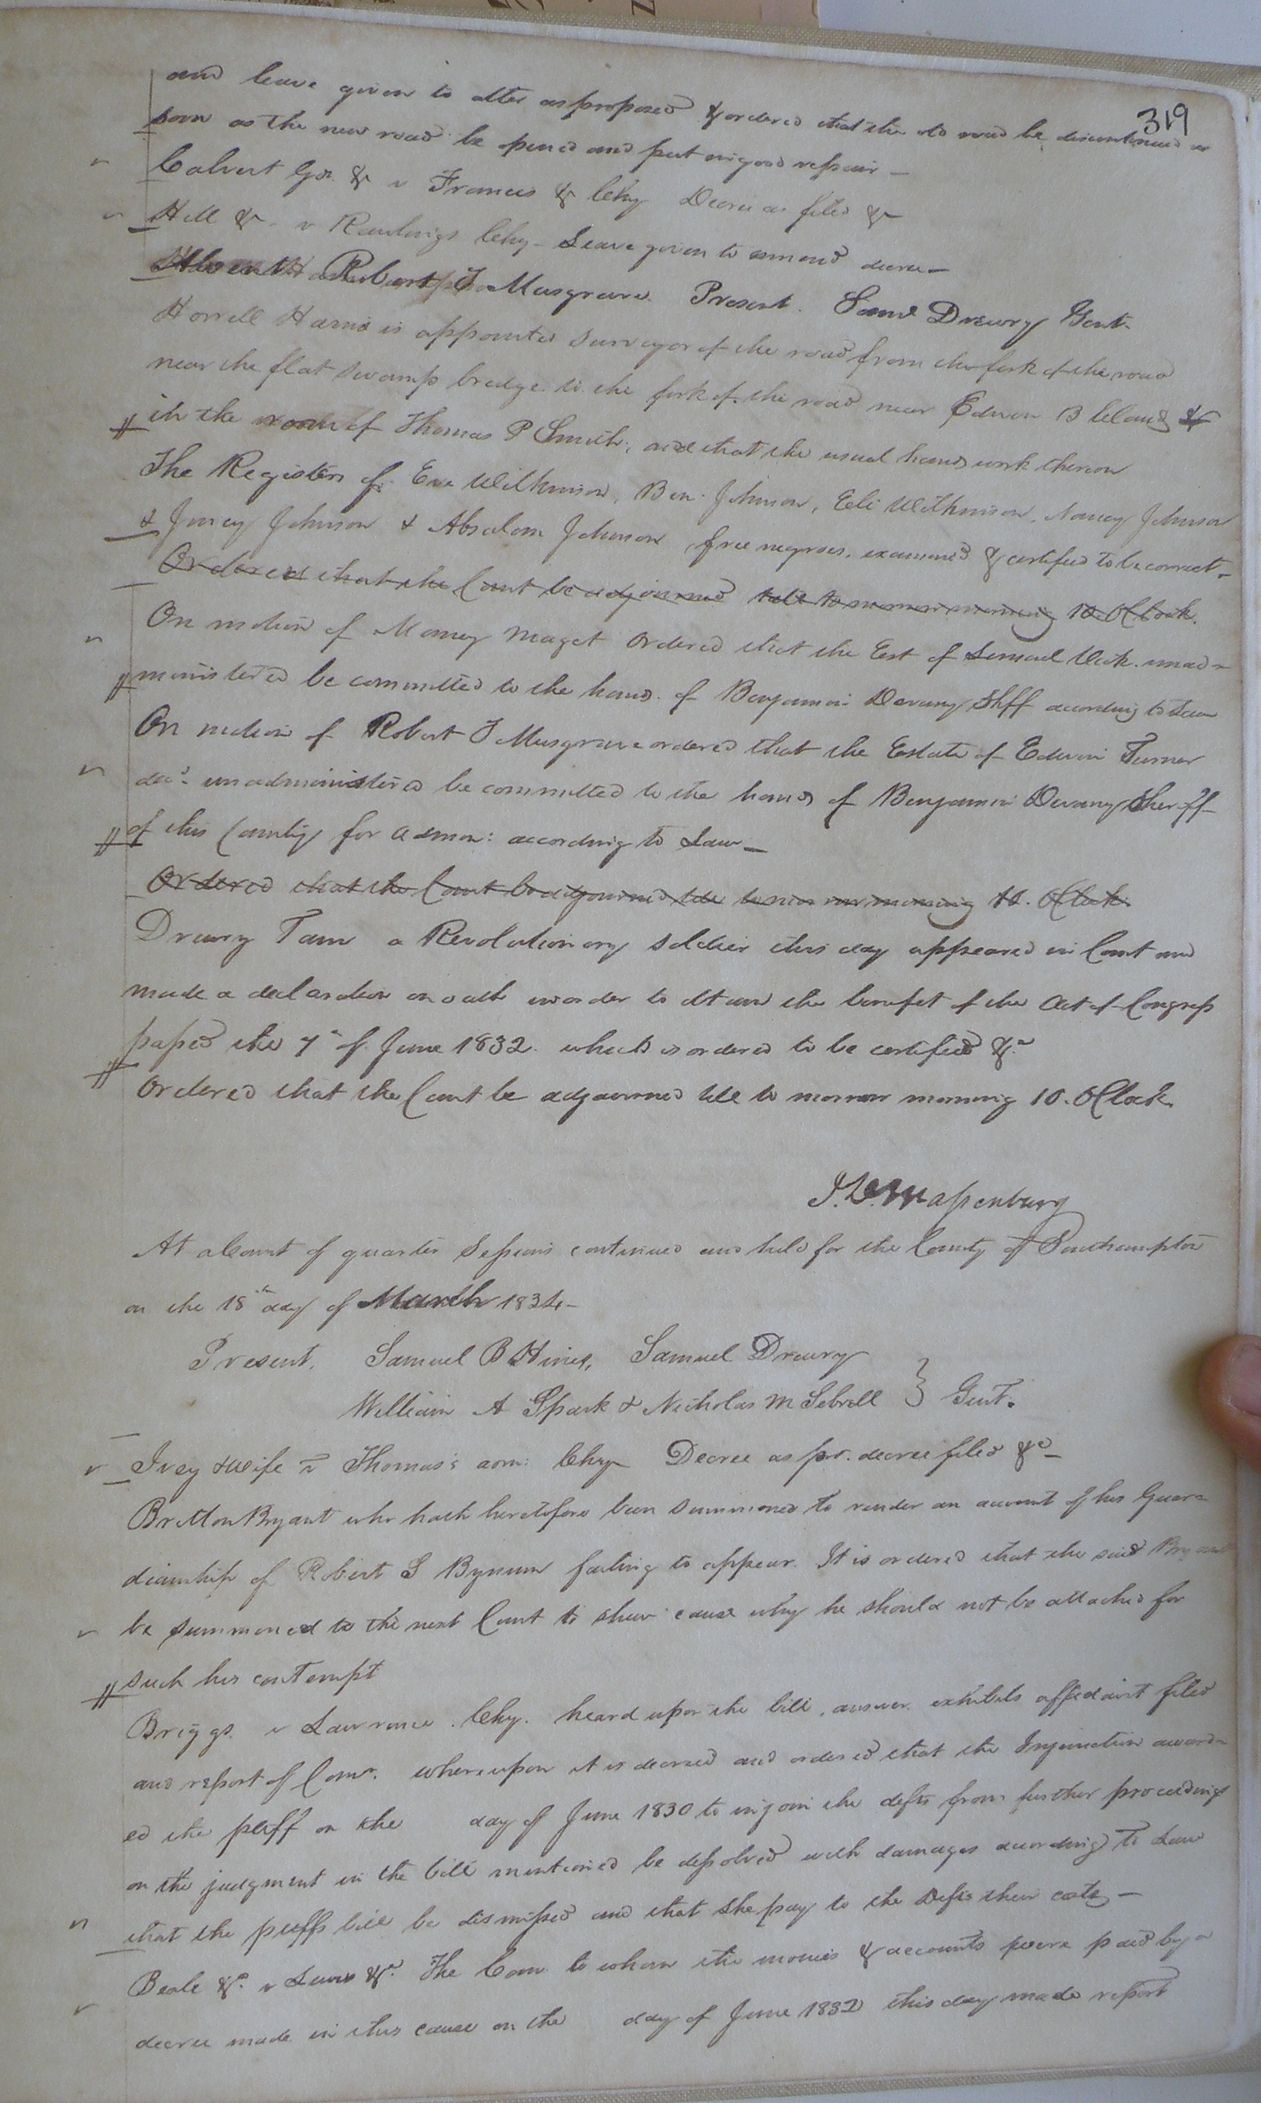 319
and leave given to alter as proposed & ordered that the old road be discontinued as
soon as the new road be opened and put in good repair —
Calvert Gdn &c v Francis &c Chy Decree as filed &c
Hill &c v Rawlings Chy — Leave given to amend decree —
Absent Robert T Musgrave. Present. Saml Drewry Gent.
Horrell Harris is appointed surveyor of the road from the fork of the road
near the flat swamp bridge to the fork of the road near Edwin B Claud &
in the room of Thomas P Smith, and that the usual hands work thereon
The Registers of Eve Wilkinson, Ben. Johnson, Eli Wilkinson, Nancy Johnson
& Jincy Johnson & Absalom Johnson, free negroes, examined & certified to be correct —
Ordered that the Court be adjourned till to morrow morning 10 OClock.
On motion of Maney Maget ordered that the Est of Lemuel unad-
ministered be committed to the hands of Benjamin Devany Shff according to Law
On motion of Robert T Musgrave ordered that the Estate of Edwin Turner
decd. unadministered be committed to the hands of Benjamin Devany Sheriff
of this County for admon: according to Law —
Ordered that the Court be adjourned till to morrow morning 10. OClock.
Drewry Tann a Revolutionary soldier this day appeared in Court and
made a declaration on oath in order to obtain the benefit of the Act of Congress
passed the 7th of June 1832. which is ordered to be certified &c
Ordered that the Court be adjourned till to morrow morning 10. OClock.
J. D. Massenburg
At a Court of quarter Sessions continued and held for the County of Southampton
on the 18th day of March 1834 —
Present, Samuel B Hines, Samuel Drewry
William A Spark & Nicholas M Sebrell } Gent.
Ivey & wife v Thomas's adm: Chy Decree as pr. decree filed &c —
Britton Bryant who hath heretofore been summoned to render an account of his Guar-
dianship of Robert S Bynum failing to appear. It is ordered that the said Bryant
be summoned to the next Court to shew cause why he should not be attached for
such his contempt
Briggs v Lawrence Chy. heard upon the bill, answer, exhibits affidavit filed
and report of Comr. whereupon it is decreed and ordered that the Injunction award-
ed the plff on the day of June 1830 to injoin the defts from further proceedings
on the judgment in the bill mentioned be dissolved with damages according to Law
that the plffs bill be dismissed and that she pay to the Defts their costs —
Beale &c v Lewis &c. The Comr to whom the monies & accounts were paid by a
decree made in this cause on the day of June 1832 this day made report